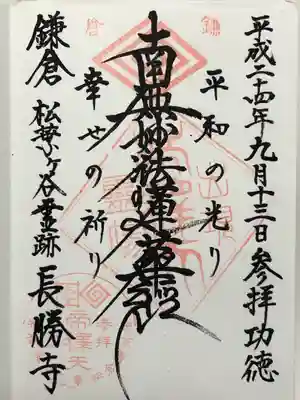 平成二十四年九月十三日参拝功徳
平和の光り
南無妙法蓮華経
幸せの祈り
鎌倉 松葉ヶ谷霊跡 長勝寺
鎌
倉
帝釋天